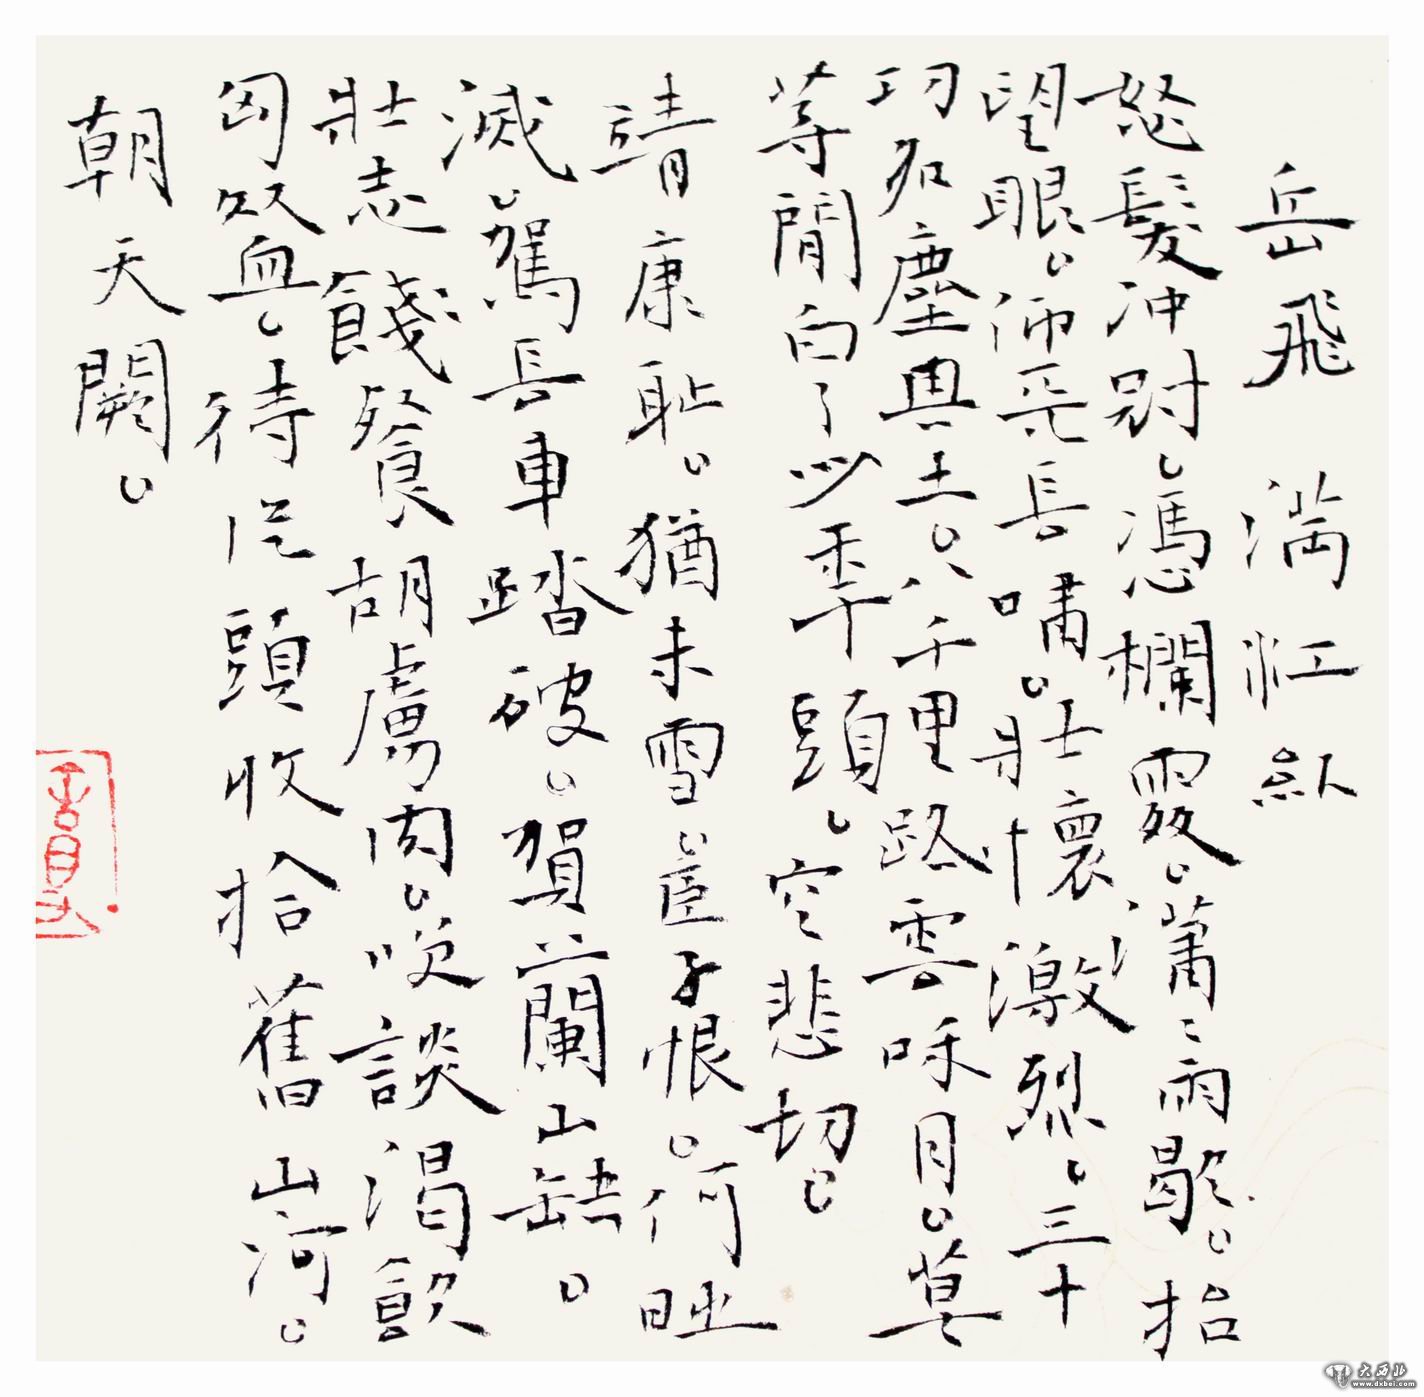 岳飛 滿江紅
怒髮冲冠。憑欄處。瀟〻雨歇。抬
望眼。仰天長嘯。壯懷激烈。三十
功名塵與土。八千里路雲和月。莫
等閒白了少年頭。空悲切。
靖康恥。猶未雪。臣子恨。何時
滅。駕長車踏破。賀蘭山缺。
壯志饑餐胡虜肉。笑談渴飲
匈奴血。待從頭收拾舊山河。
朝天闕。
大西北
www.dxbei.com